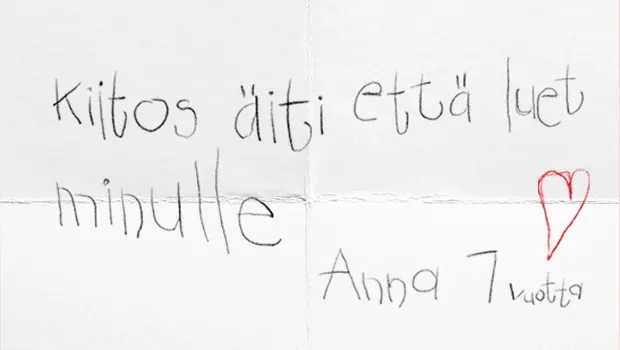 Kiitos äiti että luet
minulle
Anna 7 vuotta